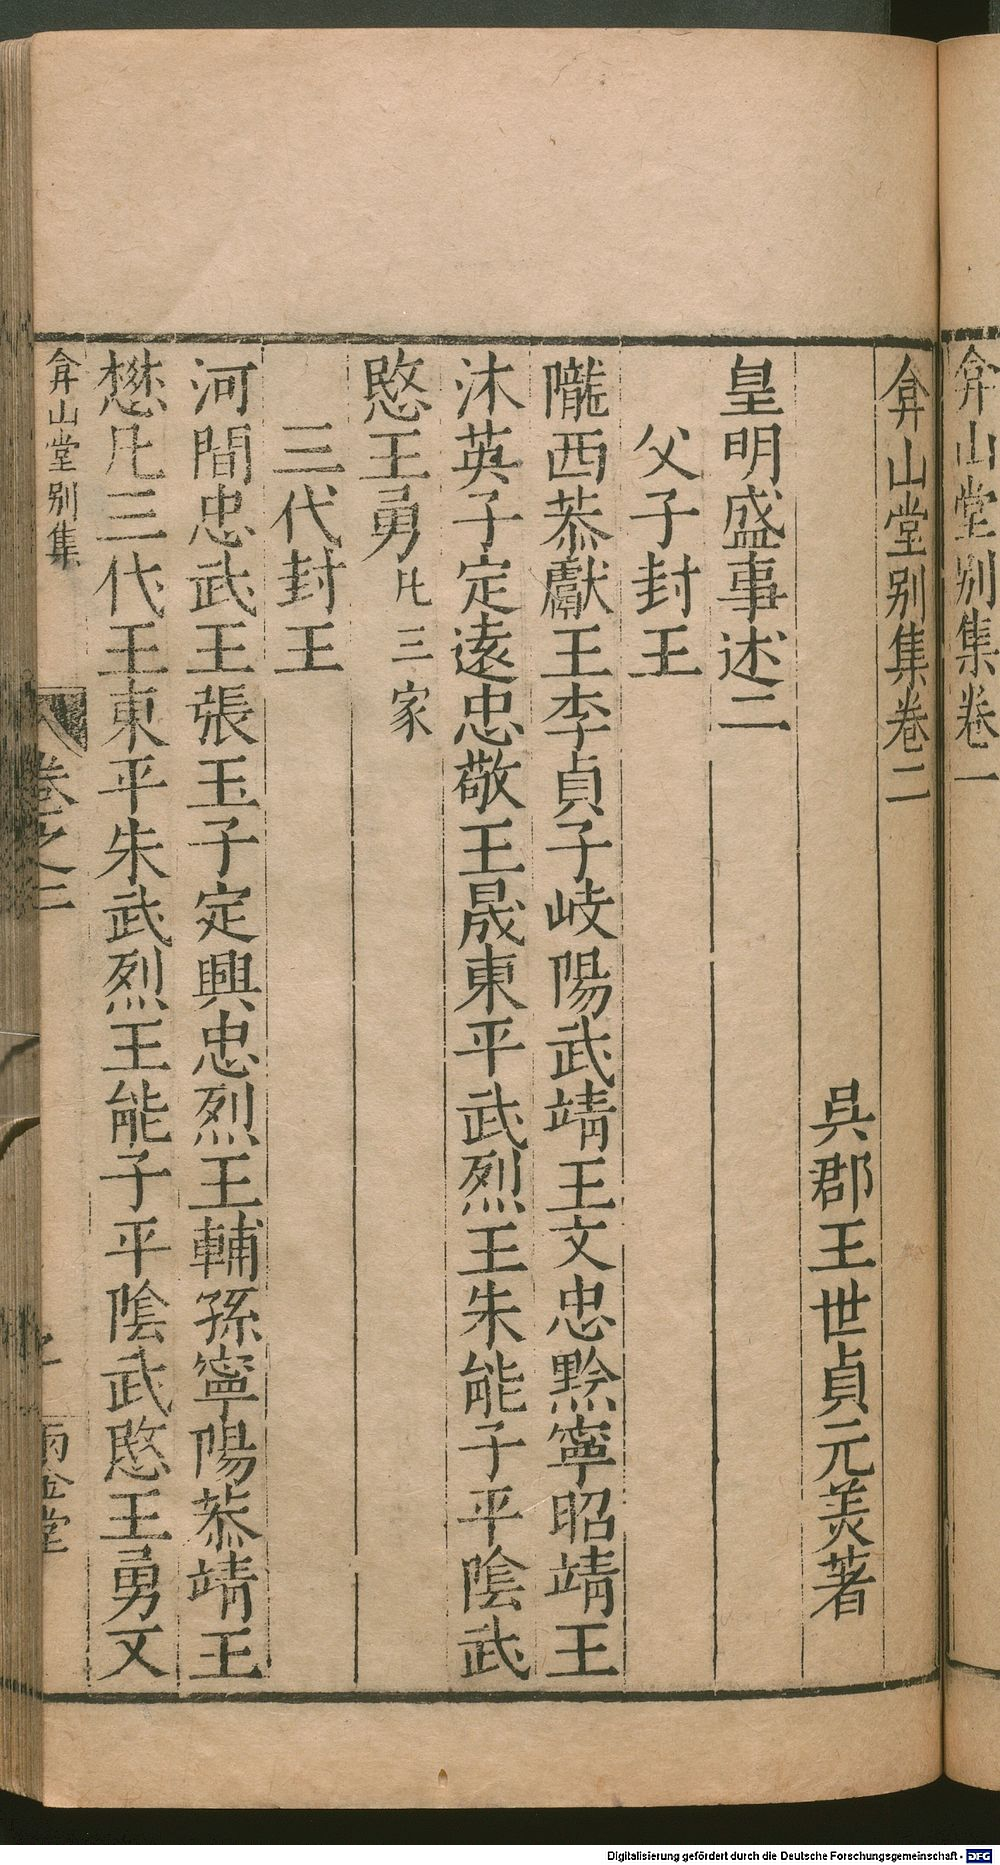 弇山堂別集卷一
弇山堂別集卷二
吳郡王世貞元羙著
皇明盛事述二
父子封王
隴西恭獻王李貞子岐陽武靖王文忠黔寧昭靖王
沐英子定遠忠敬王晟東平武烈王朱能子平陰武
愍王勇凡三家
三代封王
河間忠武王張玉子定興忠烈王輔孫寧陽恭靖王
懋凡三代王東平朱武烈王能子平陰武愍王勇又
弇山堂別集
卷之二
堂
Digitalisierung gefördert durch die Deutsche Forschungsgemeinschaft - DFG